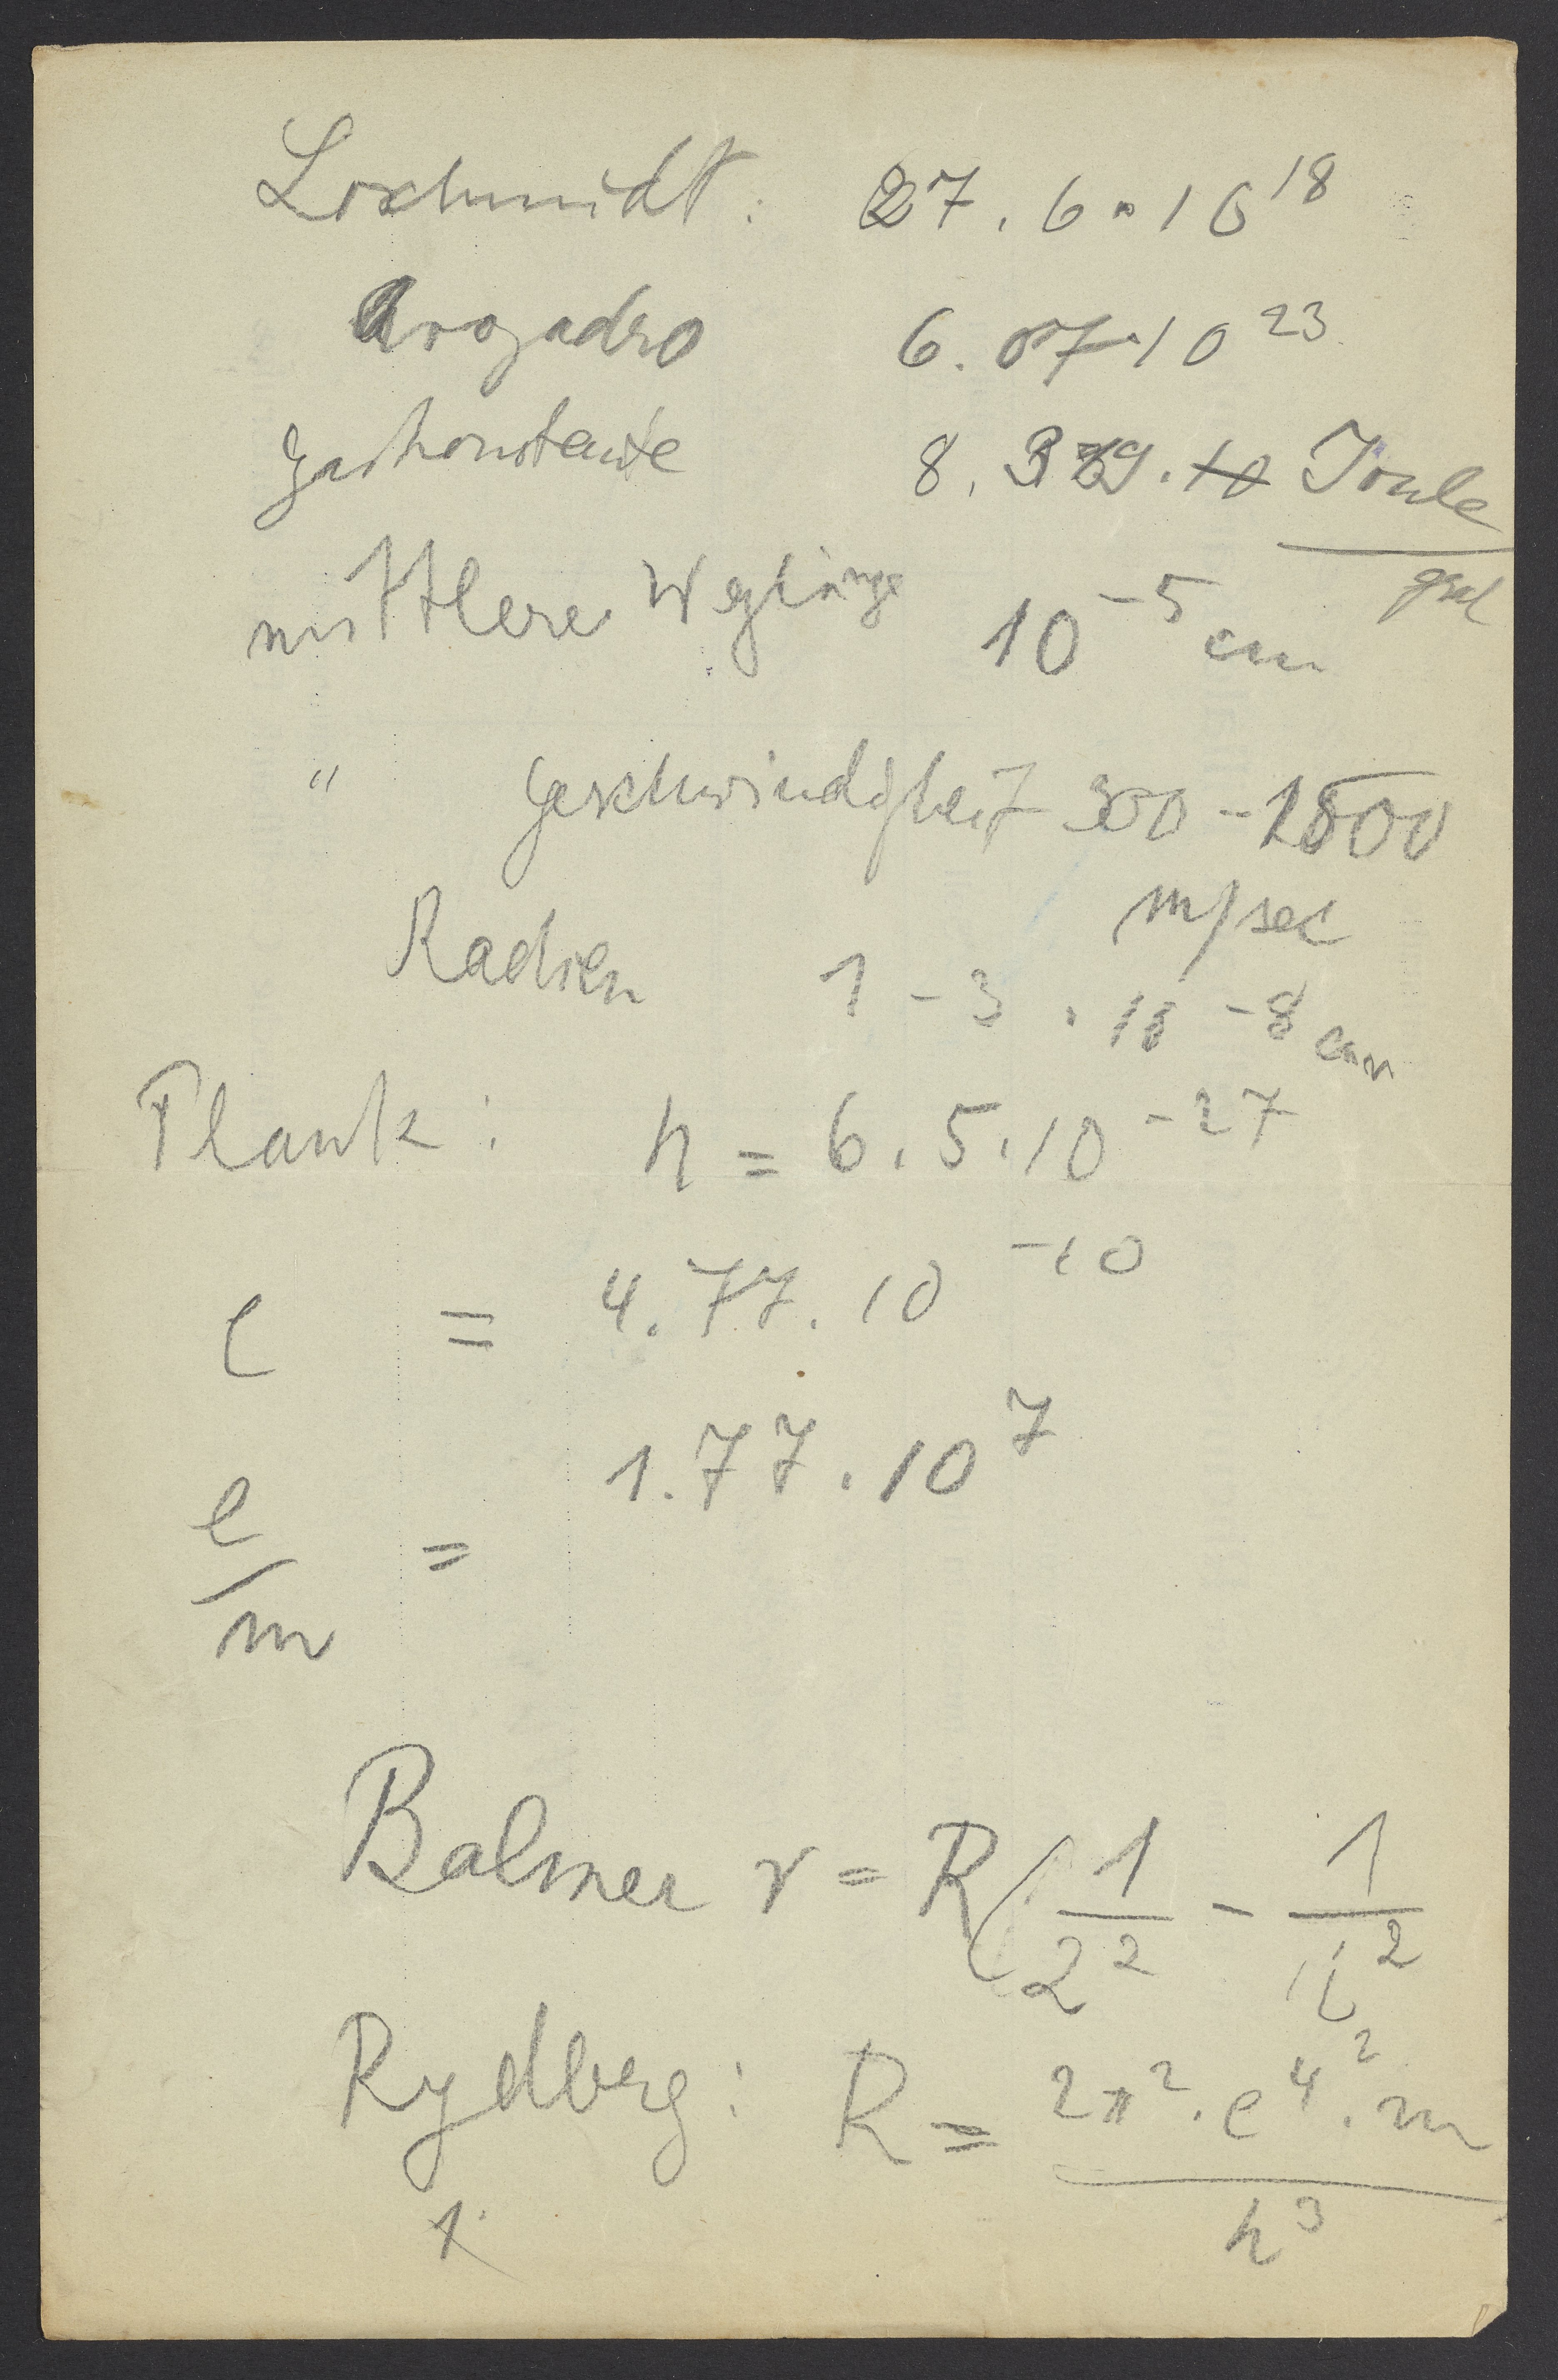 Loschmidt: 27.6·10^18
Avogadro 6.07·10^23
Gaskonstante 8.319. Joule / grd
mittlere Weglänge 10^-5 cm
" Geschwindigkeit 300-1800
m/sec
Radien 1-3·10^-8 cm
Plank: h = 6.5·10^-27
e = 4.77·10^-10
e/m = 1.77·10^7
Balmer ν = R(1/2^2 - 1/n^2
Rydberg: R = 2π^2·e^4·m / h^3